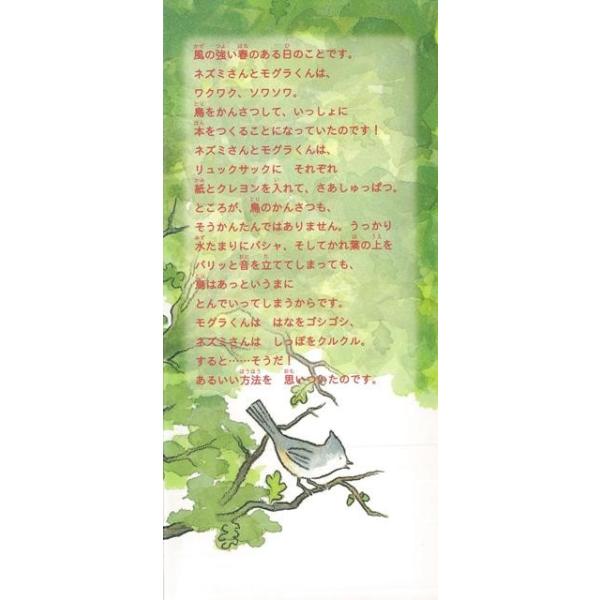 風の強い春のある日のことです。
ネズミさんとモグラくんは、
ワクワク、ソワソワ。
鳥をかんさつして、いっしょに
本をつくることになっていたのです！
ネズミさんとモグラくんは、
リュックサックに　それぞれ
紙とクレヨンを入れて、さあしゅっぱつ。
ところが、鳥のかんさつも、
そうかんたんではありません。うっかり
水たまりにパシャ、そしてかれ葉の上を
パリッと音を立ててしまっても、
鳥はあっというまに
とんでいってしまうからです。
モグラくんは　はなをゴシゴシ、
ネズミさんは　しっぽをクルクル。
すると……そうだ！
あるいい方法を　思いついたのです。